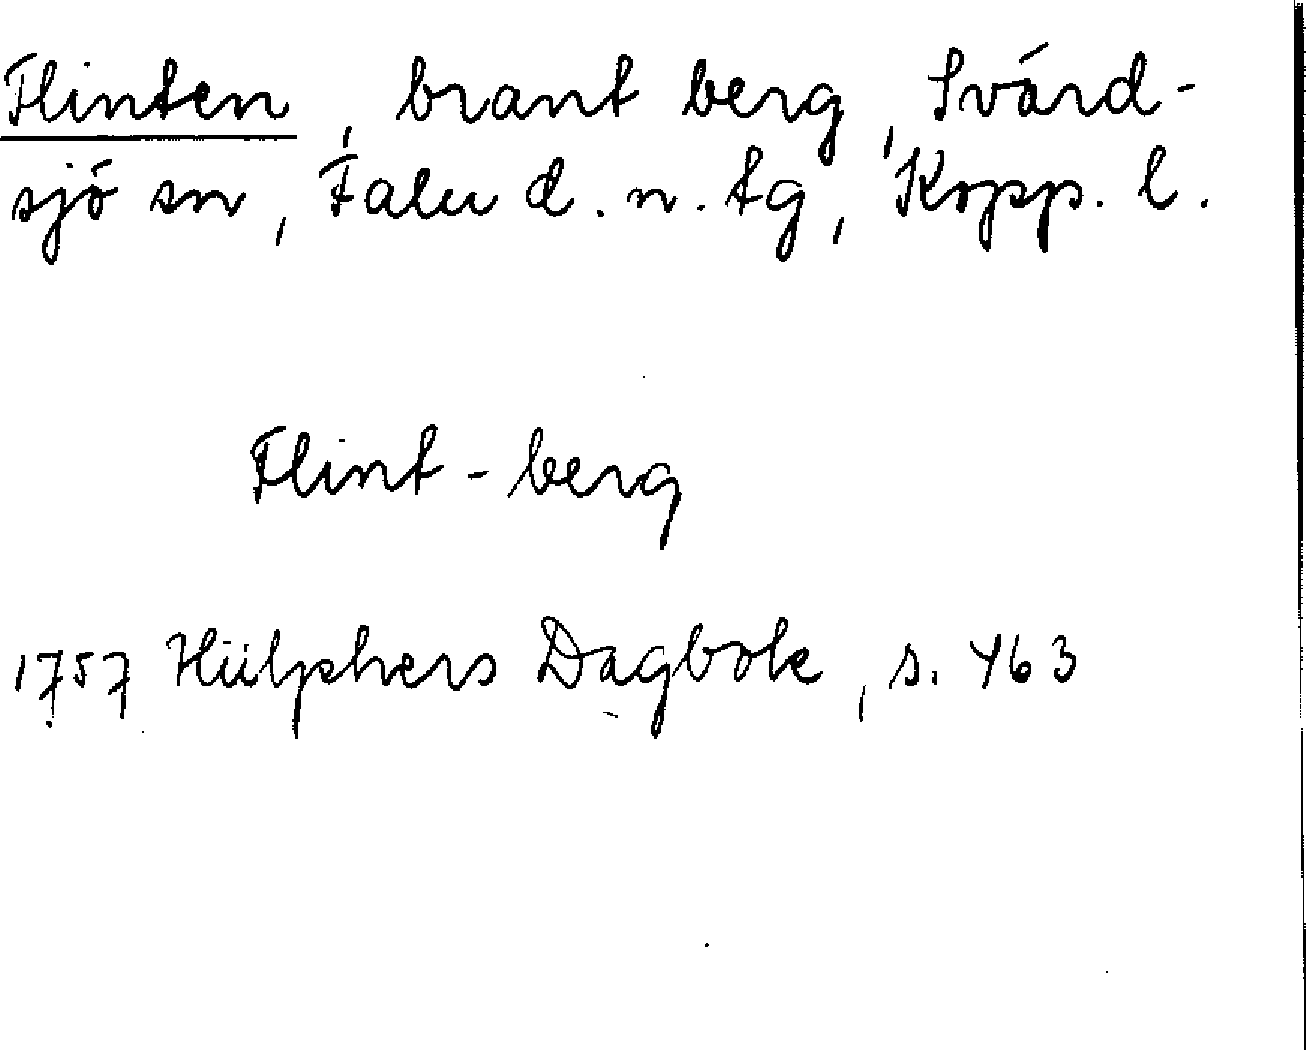 Flinten, brant berg, Svärd-
sjö sn, Falu d. n. tg, Kopp. l.
Flint-berg
1757 Hülphers Dagbok, s. 463